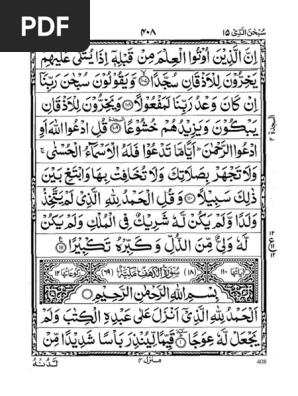 PDF
سُبْحٰنَ الَّذِیْۤ ۱۵
۴۰۸
اِنَّ الَّذِیْنَ اُوْتُوا الْعِلْمَ مِنْ قَبْلِهٖۤ اِذَا یُتْلٰى عَلَیْهِمْ
یَخِرُّوْنَ لِلْاَذْقَانِ سُجَّدًا ۙ﴿۱۰۷﴾ وَّیَقُوْلُوْنَ سُبْحٰنَ رَبِّنَاۤ
اِنْ كَانَ وَعْدُ رَبِّنَا لَمَفْعُوْلًا ﴿۱۰۸﴾ وَیَخِرُّوْنَ لِلْاَذْقَانِ
یَبْكُوْنَ وَیَزِیْدُهُمْ خُشُوْعًا ﴿۱۰۹﴾ قُلِ ادْعُوا اللّٰهَ اَوِ
ادْعُوا الرَّحْمٰنَ ؕ اَیًّا مَّا تَدْعُوْا فَلَهُ الْاَسْمَآءُ الْحُسْنٰى ۚ
وَلَا تَجْهَرْ بِصَلَاتِكَ وَلَا تُخَافِتْ بِهَا وَابْتَغِ بَیْنَ
ذٰلِكَ سَبِیْلًا ﴿۱۱۰﴾ وَقُلِ الْحَمْدُ لِلّٰهِ الَّذِیْ لَمْ یَتَّخِذْ
وَلَدًا وَّلَمْ یَكُنْ لَّهٗ شَرِیْكٌ فِی الْمُلْكِ وَلَمْ یَكُنْ
لَّهٗ وَلِیٌّ مِّنَ الذُّلِّ وَكَبِّرْهُ تَكْبِیْرًا ﴿۱۱۱﴾
اٰیَاتُهَا ۱۱۰ (۱۸) سُوْرَةُ الْكَهْفِ مَكِّیَّةٌ (۶۹) رُكُوْعَاتُهَا ۱۲
بِسْمِ اللّٰهِ الرَّحْمٰنِ الرَّحِیْمِ
اَلْحَمْدُ لِلّٰهِ الَّذِیْۤ اَنْزَلَ عَلٰى عَبْدِهِ الْكِتٰبَ وَلَمْ
یَجْعَلْ لَّهٗ عِوَجًا ﴿۱﴾ قَیِّمًا لِّیُنْذِرَ بَاْسًا شَدِیْدًا مِّنْ
لَّدُنْهُ
منزل ۴
408